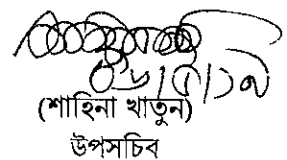 ০৬/৫/১৯
(শাহিনা খাতুন)
উপসচিব